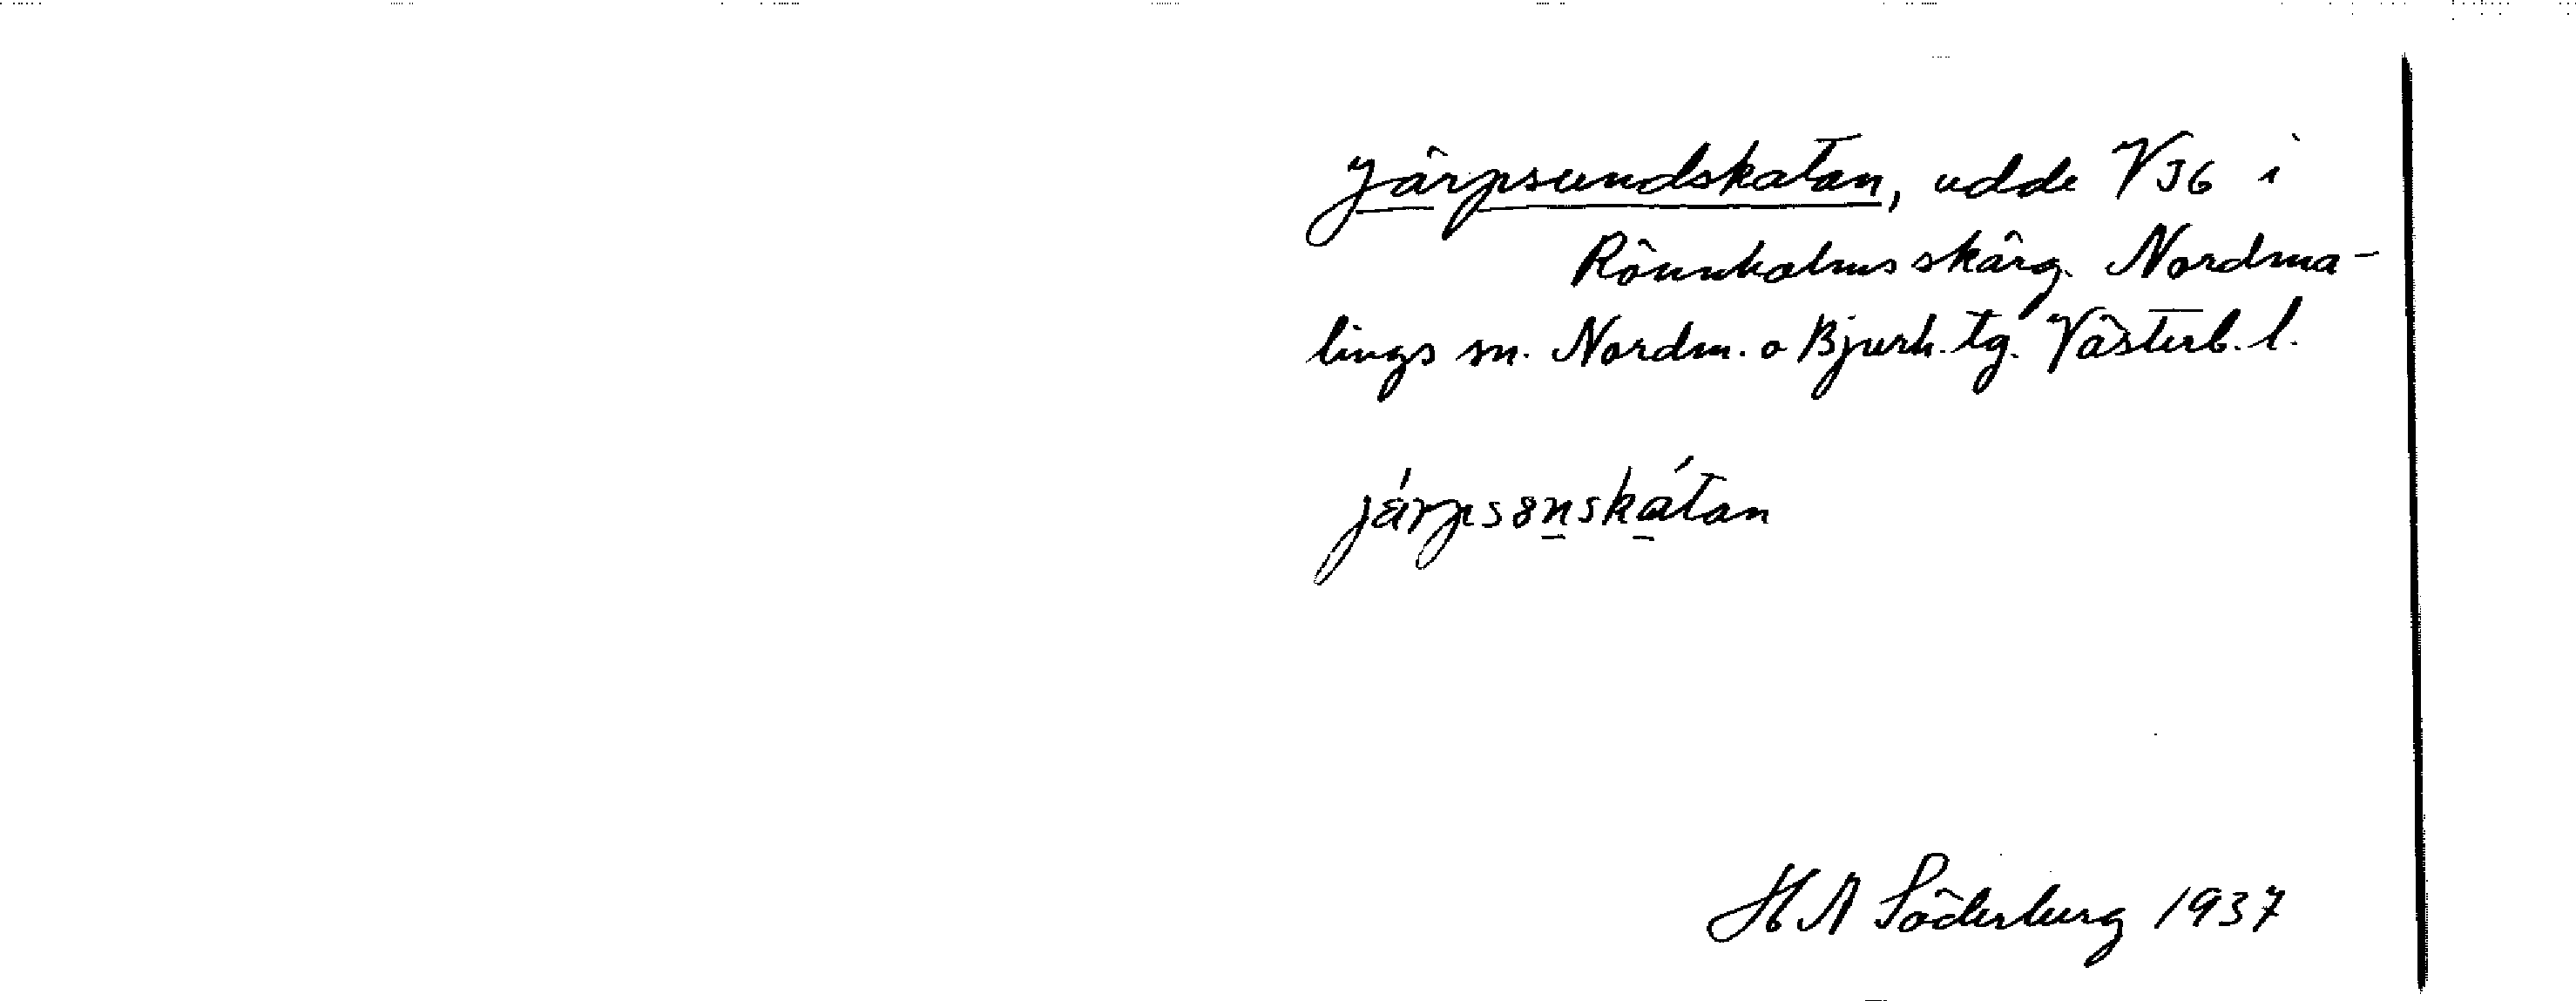 Järpsundskatan, udde VJ6 i
Rönnholms skärg. Nordma-
lings sn. Nordm. o Bjurh. tg. Västerb. l.
jä́rps8n̲ská̲tan
H A Söderberg 1937